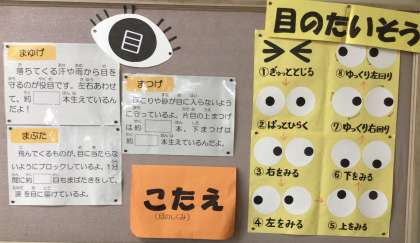 目
まゆげ
落ちてくる汗や雨から目を
守るのが役目です。左右あわせ
て、約 本生えているん
だよ！
まつげ
ほこりや砂が目に入らないよう
に守っているよ。片目の上まつげ
は約 本、下まつげは
約 本生えているんだよ。
まぶた
飛んでくるものが、目に当たらな
いようにブロックしているよ。1分
間に約 回もまばたきをして、
涙を目に届けているよ。
こたえ
(目のしくみ)
目のたいそう
①ぎゅっととじる
②ぱっとひらく
③右をみる
④左をみる
⑤上をみる
⑥下をみる
⑦ゆっくり右回り
⑧ゆっくり左回り